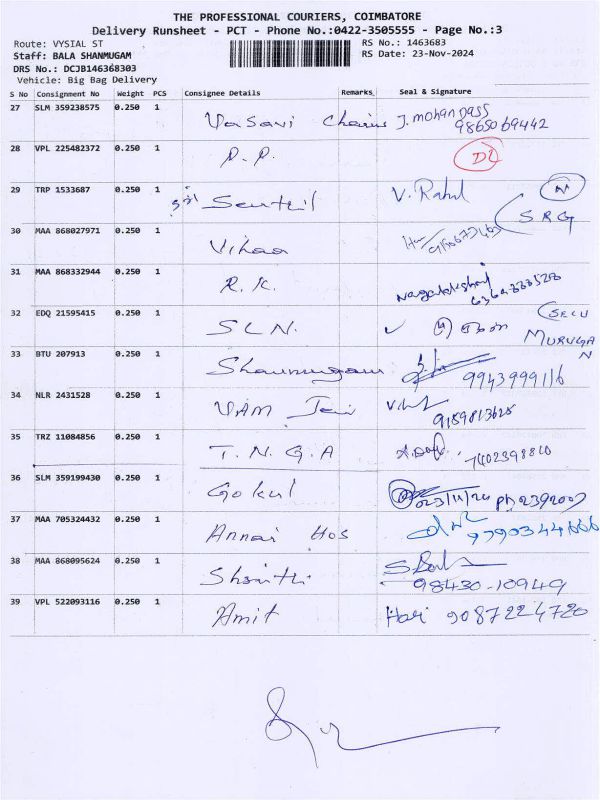 THE PROFESSIONAL COURIERS, COIMBATORE
Delivery Runsheet - PCT - Phone No.:0422-3505555 - Page No.:3
Route: VYSIAL ST RS No.: 1463683
Staff: BALA SHANMUGAM RS Date: 23-Nov-2024
DRS No.: DCJB146368303
Vehicle: Big Bag Delivery
S No Consignment No Weight PCS Consignee Details Remarks Seal & Signature
27 SLM 359238575 0.250 1 Vasavi Chains J. mohan dass
9865069442
28 VPL 225482372 0.250 1 P. P. DL
29 TRP 1533687 0.250 1 Senthil V. Rahul
SRG
30 MAA 868027971 0.250 1 Vihaa
31 MAA 868332944 0.250 1 R. K.
32 EDQ 21595415 0.250 1 SLN. SELU
MURUGAN
33 BTU 207913 0.250 1 Shanmugam 9943999116
34 NLR 2431528 0.250 1 VAM Jai
9159813625
35 TRZ 11084856 0.250 1 T. N. G. A 7402398810
36 SLM 359199430 0.250 1 Gokul 23/11/24
37 MAA 705324432 0.250 1 Annai Hos
9790344666
38 MAA 868095624 0.250 1 Shanthi
98430-10949
39 VPL 522093116 0.250 1 Amit Hari 9087224720